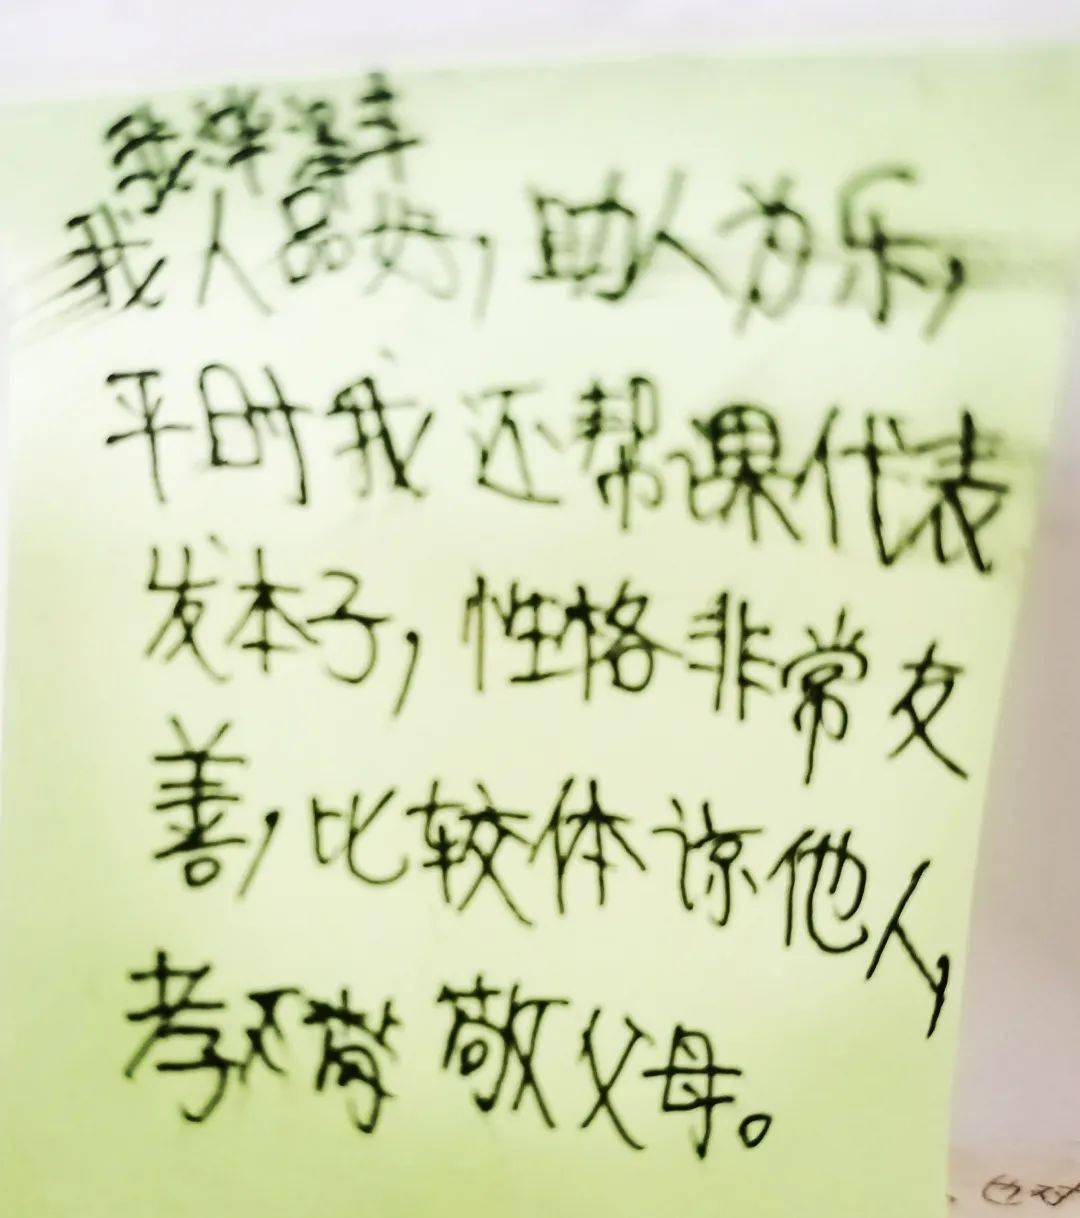 我人品好，助人为乐，
平时我还帮课代表
发本子，性格非常友
善，比较体谅他人，
孝敬父母。